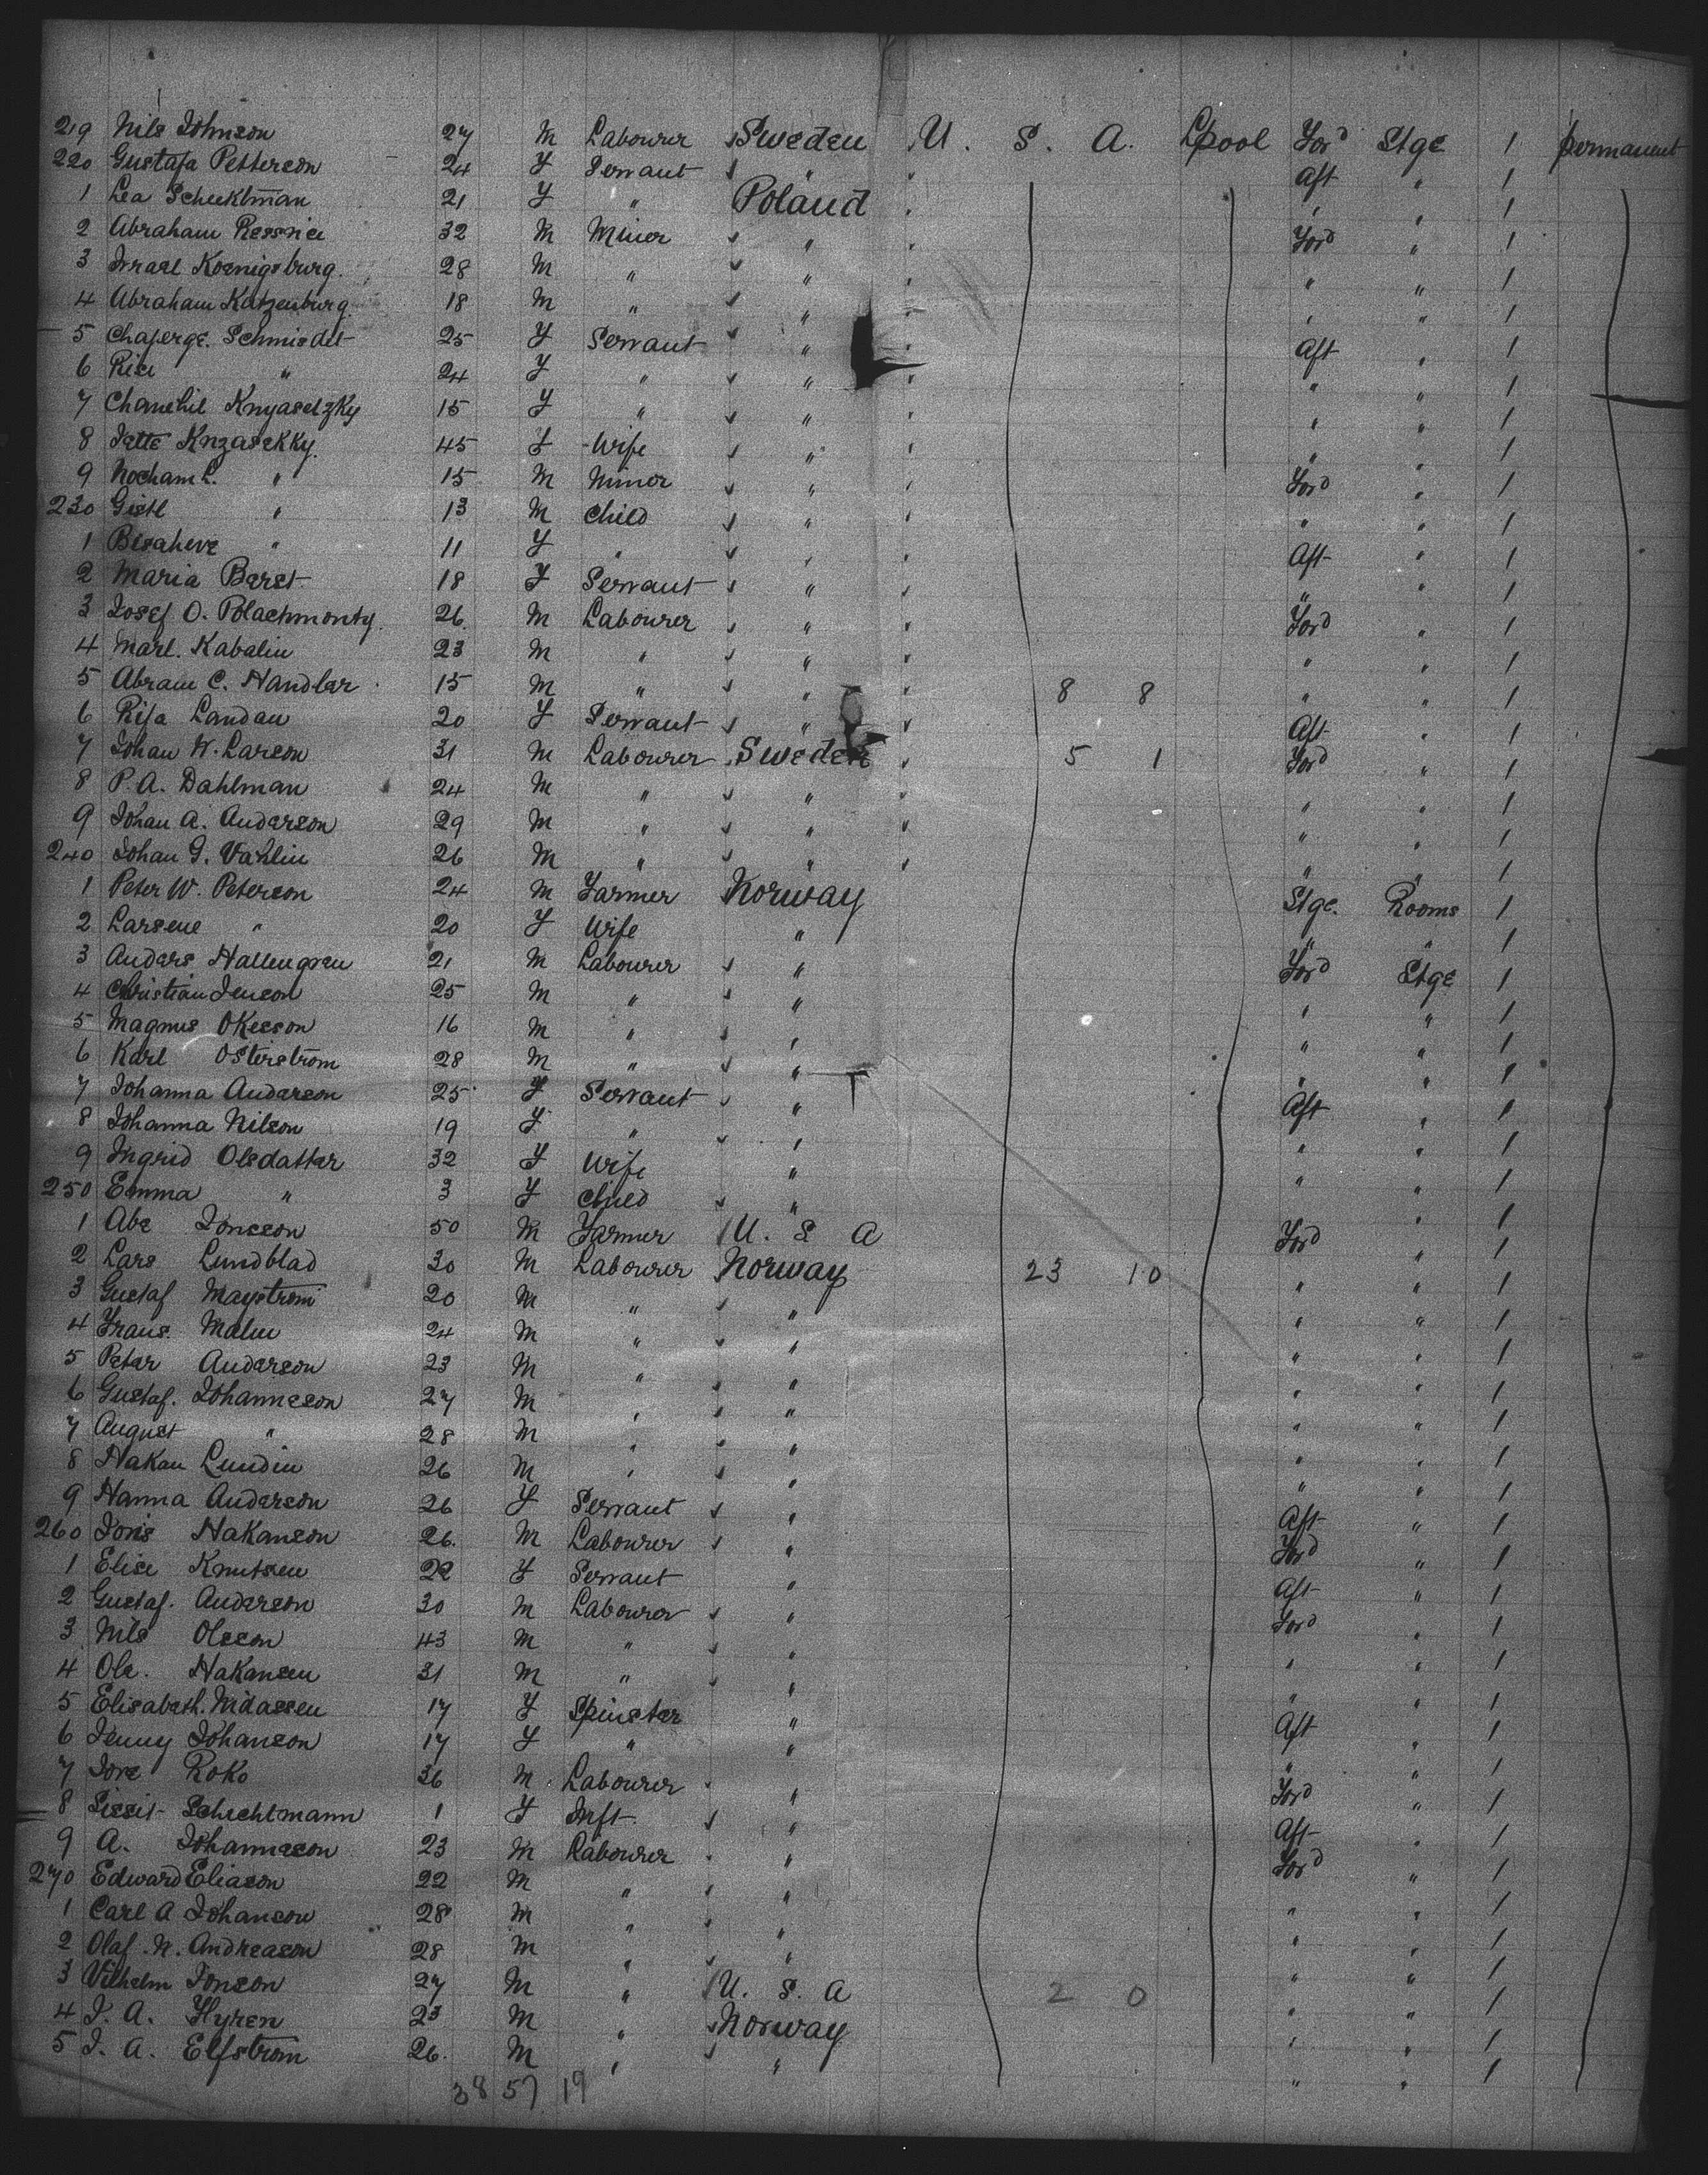 219 Nils Johnson 27 M Labourer Sweden U. S. A. Lpool Ford Stge 1 permanent
220 Gustafa Petterson 24 F Servant " Aft " 1
1 Lea 21 F " Poland " " 1
2 Abraham 32 M Miner " Ford " 1
3 Israel Koenigsburg. 28 M " " " " 1
4 Abraham Katzenburg 18 M " " " " 1
5 Schmiedet 25 F Servant " Aft " 1
6 " 24 F " " " " 1
7 15 F " " " " 1
8 45 F Wife " " " 1
9 " 15 M Minor " Ford " 1
230 " 13 M Child " " " 1
1 " 11 F " " Aft " 1
2 Maria 18 F Servant " " " 1
3 Josef O. 26 M Labourer " Ford " 1
4 Kabalin 23 M " " " " 1
5 Abram C. Handler 15 M " " 8 8 " " 1
6 Landau 20 F Servant " Aft " 1
7 Johan W. Larson 31 M Labourer Sweden 5 1 Ford " 1
8 P. A. Dahlman 24 M " " " " 1
9 Johan A. Anderson 29 M " " " " 1
240 Johan G. Vahlin 26 M " " " " 1
1 Peter W. Peterson 24 M Farmer Norway Stge. Rooms 1
2 Larsene " 20 F Wife " " " 1
3 Anders Hallengren 21 M Labourer " Ford Stge 1
4 Christian Jenson 25 M " " " " 1
5 Magnus Okesson 16 M " " " " 1
6 Karl Osterstrom 28 M " " " " 1
7 Johanna Anderson 25 F Servant " Aft " 1
8 Johanna Nilson 19 F " " " " 1
9 Ingrid Olsdatter 32 F Wife " " " 1
250 Emma " 3 F Child " " 1
1 Abe Jonsson 50 M Farmer U. S A Ford " 1
2 Lars Lundblad 30 M Labourer Norway 23 10 " " 1
3 Gustaf 20 M " " " " 1
4 Frans. Malm 24 M " " " " 1
5 Peter Anderson 23 M " " " " 1
6 Gustaf. Johanneson 27 M " " " " 1
7 August " 28 M " " " " 1
8 Hakan Lundin 26 M " " " " 1
9 Hanna Anderson 26 F Servant " Aft " 1
260 Hakanson 26. M Labourer " Ford " 1
1 Elise Knutsen 22 F Servant " Aft " 1
2 Gustaf. Anderson 30 M Labourer " Ford " 1
3 Nils Olsson 43 M " " " " 1
4 Ole. Hakansen 31 M " " " " 1
5 Elisabeth. 17 F Spinster " Aft " 1
6 Jenny Johanson 17 F " " " " 1
7 Roko 36 M Labourer " Ford " 1
8 Schechtmann 1 F Inft " Aft " 1
9 A. Johanneson 23 M Labourer " Ford " 1
270 Edward Eliason 22 M " " " " 1
1 Carl A Johanson 28 M " " " " 1
2 Olaf. N. Andreason 28 M " " " " 1
3 Vilhelm Jonson 27 M " U. S. A 2 0 " " 1
4 J. A. Hyren 23 M " Norway " " 1
5 J. A. Elfstrom 26. M " " " "
38 57 19